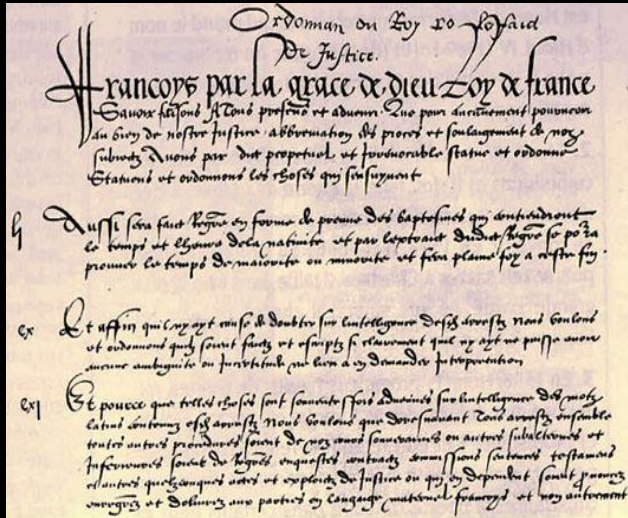 Ordonnan du Roy sur le faict
De Justice.
Francoys par la grace de dieu Roy de france
Savoir faisons A Tous presens et advenir Que pour aucunement pourveoir
au bien de nostre Justice abbreviation des proces et soulagement de noz
subiectz Avons par edit perpetuel et Irrevocable statue et ordonne
Statuons et ordonnons les choses qui sensuyvent
lj Aussi sera faict Regre en forme de preuve des baptesmes qui contiendront
le temps et lheure de la nativite et par lextraict dudict Regre se pourra
prouver le temps de maiorite ou minorite et fera plaine foy a ceste fin.
cx Et affin quil ny ayt cause de doubter sur lintelligence desdictz arrestz Nous voulons
et ordonnons quilz soient faictz et escriptz si clerement quil ny ayt ne puisse avoir
aucune ambiguite ou Incertitude ne lieu a en demander Interpretation
cxj Et pource que telles choses sont souventesfois advenues sur lintelligence des motz
latins contenuz esdictz arrestz Nous voulons que doresnavant Tous arrestz ensemble
toutes autres procedures soient de noz cours souveraines ou autres subalternes et
Inferieures soient de Regres enquestes contractz commissions sentences testamens
et autres quelzconques actes et exploictz de Justice ou qui en dependent soient prononcez
enregrez et delivrez aux parties en langaige maternel francoys et non autrement